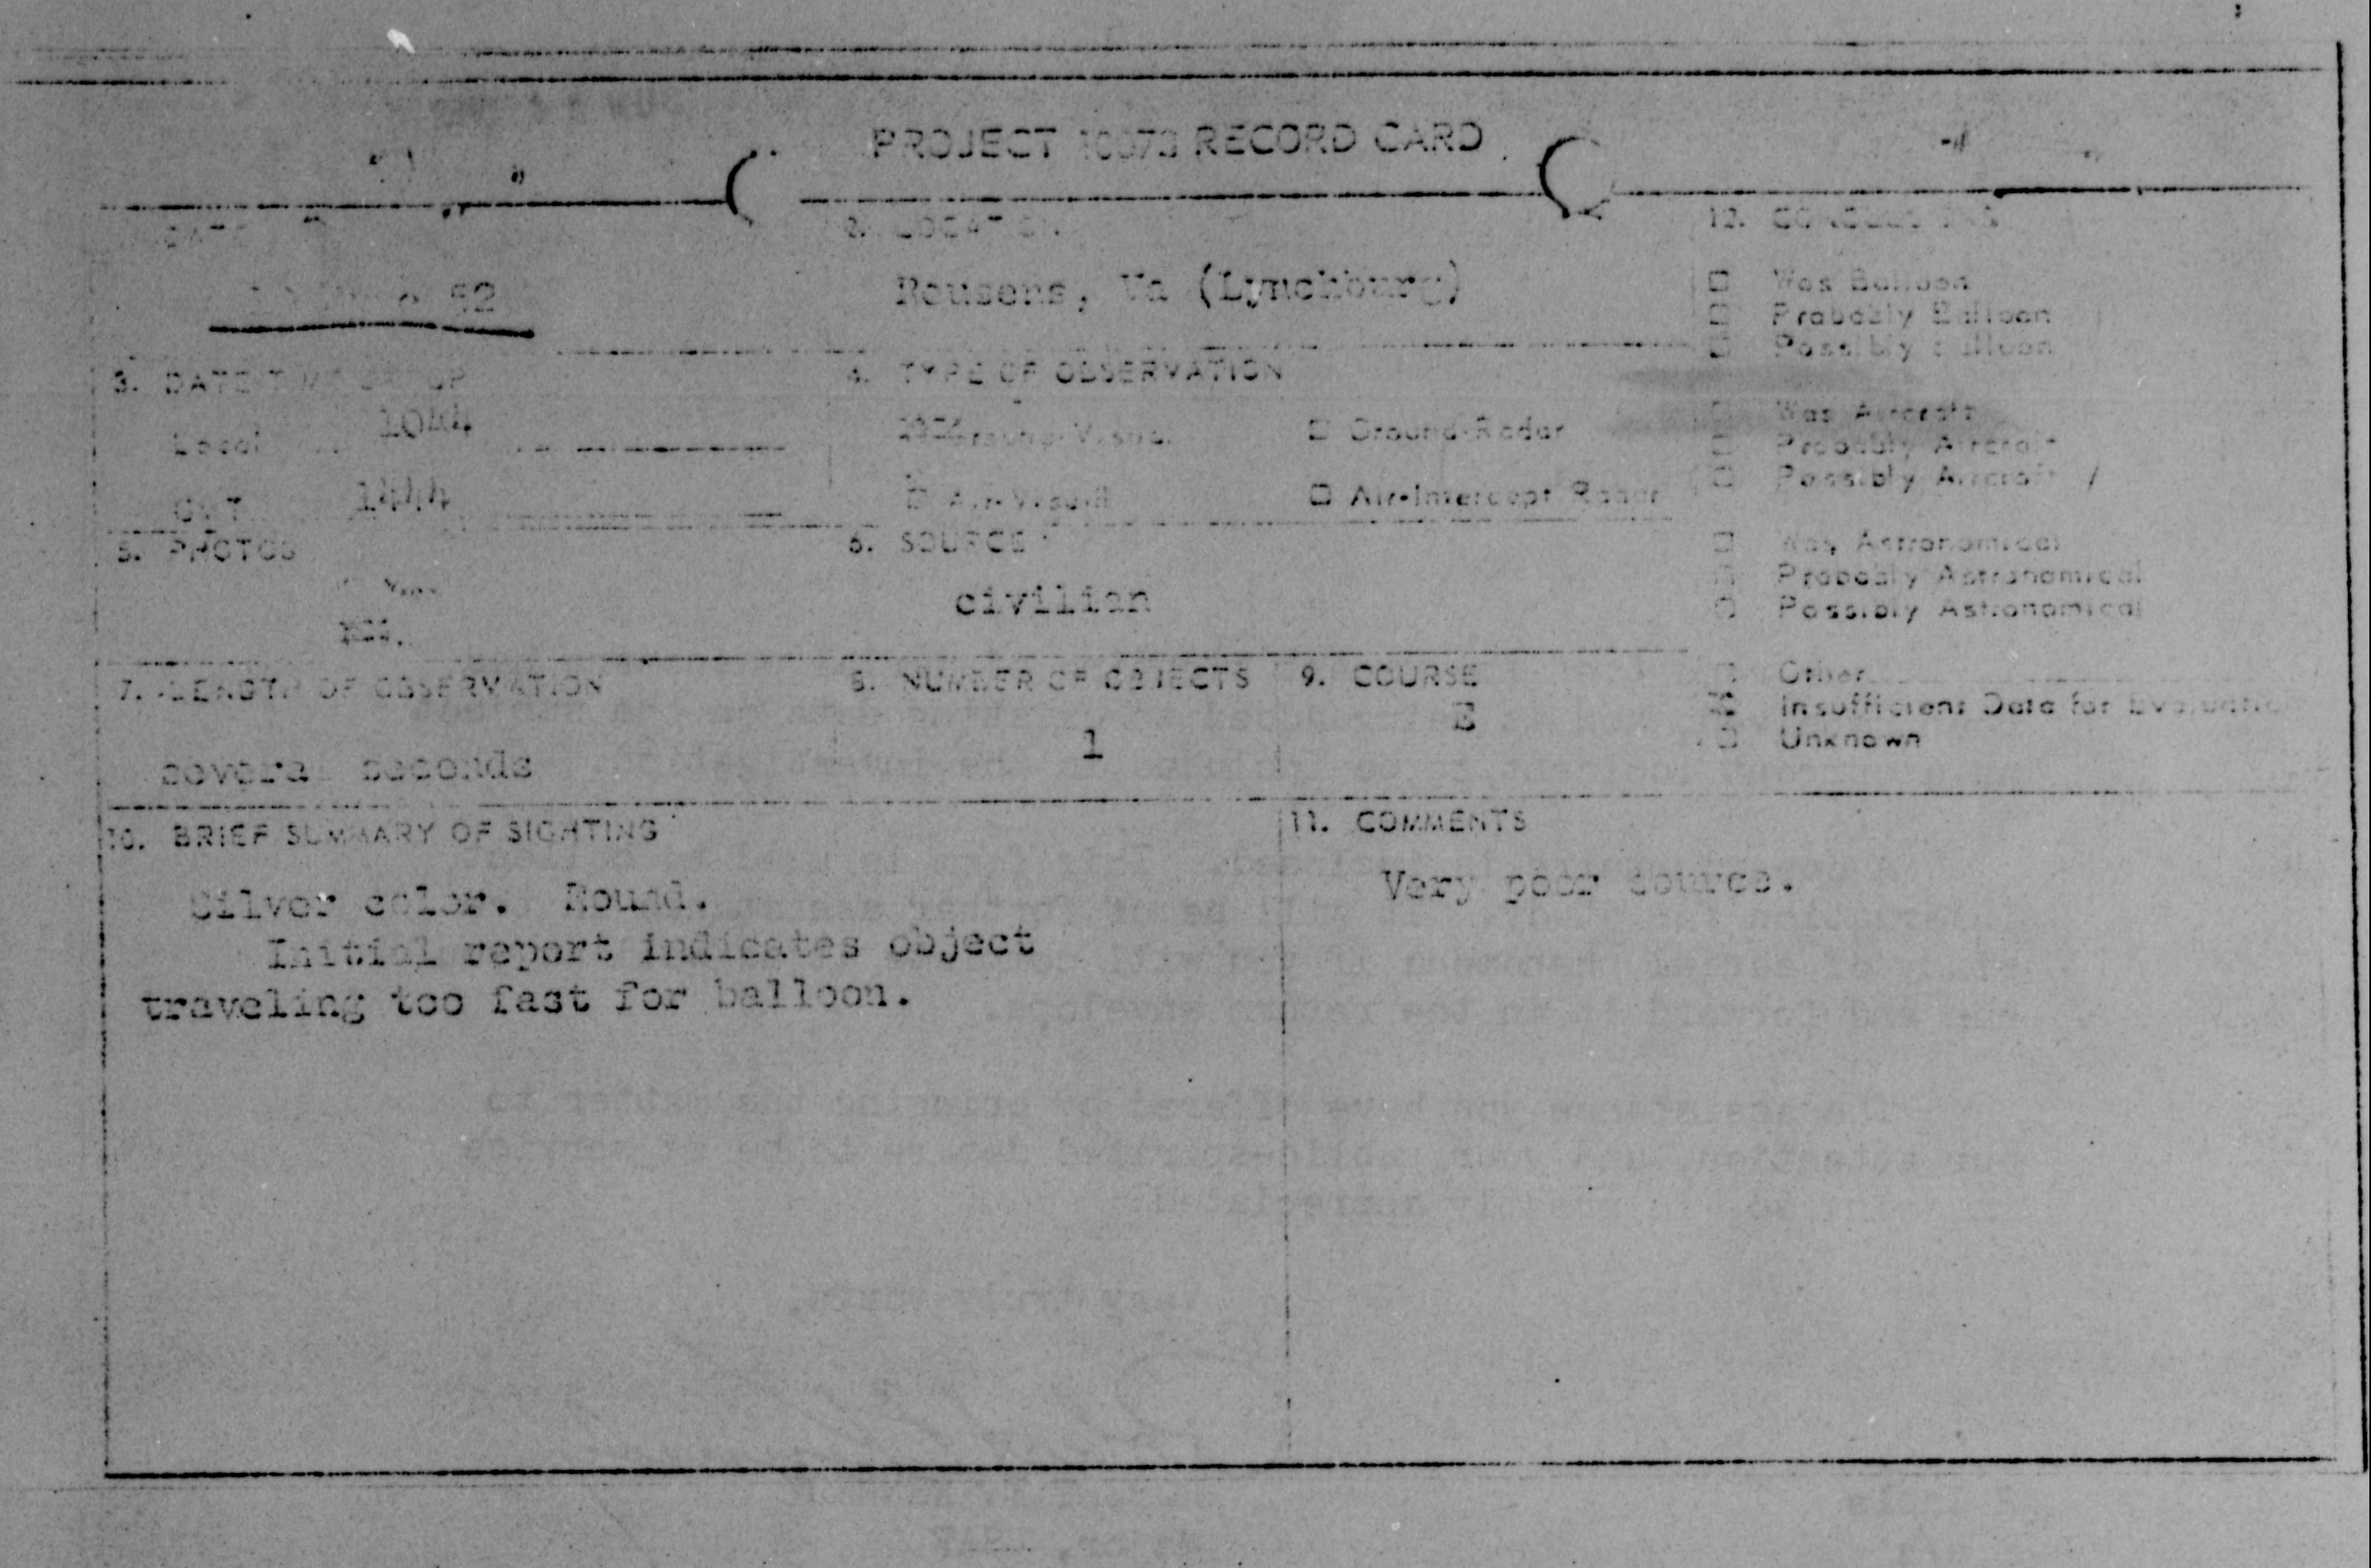 PROJECT 10073 RECORD CARD
DATE
52
2. LOCATION
Rousens, Va (Lynchburg)
12. CONCLUSIONS
☐ Was Balloon
☐ Probably Balloon
☐ Possibly Balloon
3. DATE-TIME GROUP
Local 1044
GMT 1444
4. TYPE OF OBSERVATION
Ground-Visual
☐ Ground-Radar
☐ Air-Visual
☐ Air-Intercept Radar
☐ Was Aircraft
☐ Probably Aircraft
☐ Possibly Aircraft
5. PHOTOS
6. SOURCE
civilian
☐ Was Astronomical
☐ Probably Astronomical
☐ Possibly Astronomical
7. LENGTH OF OBSERVATION
several seconds
8. NUMBER OF OBJECTS
1
9. COURSE
E
☐ Other
Insufficient Data for Evaluatio
☐ Unknown
10. BRIEF SUMMARY OF SIGHTING
Silver color. Round.
Initial report indicates object
traveling too fast for balloon.
11. COMMENTS
Very poor source.